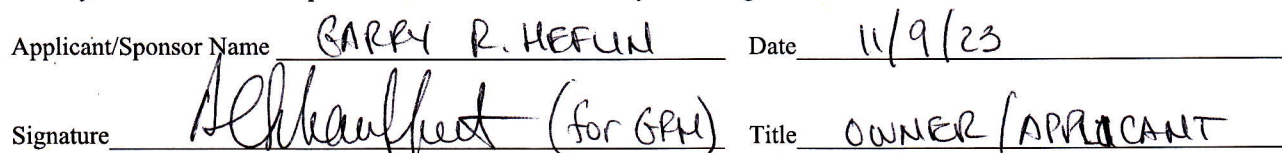 Applicant/Sponsor Name GARRY R. HEFLIN Date 11/9/23
Signature (for GRH) Title OWNER/APPLICANT